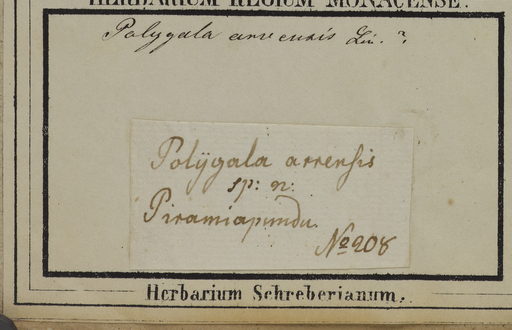 HERBARIUM REGIUM MONACENSE.
Polygala arvensis Lin. ?
Polÿgala arvensis
sp: n:
Piramiapundu.
No 208
Herbarium Schreberianum.